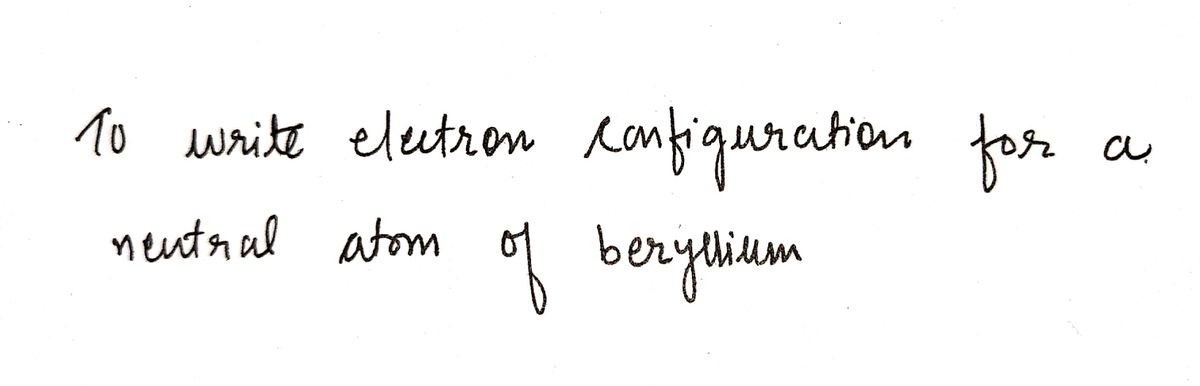 To write electron configuration for a
neutral atom of beryllium